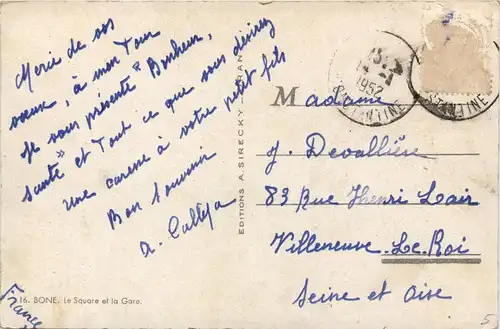 Merci de vos
vœux, à mon Tour
Je vous présente "Bonheur,
santé" et Tout ce que vous désirez
une caresse à votre petit fils
Bon Souvenir
A. Calleja
16. BONE. Le Square et la Gare.
France
EDITIONS A. SIRECKY - ORAN
1952
CONSTANTINE
Madame
J. Devallière
83 Rue Henri Lair
Villeneuve Le Roi
Seine et Oise
5